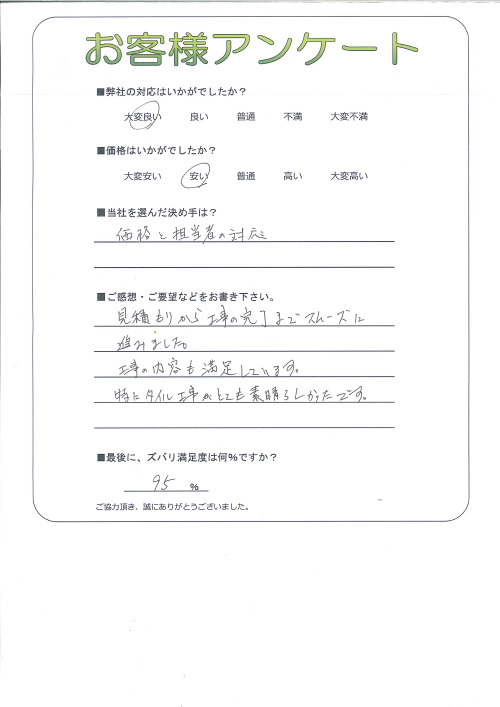 お客様アンケート
■弊社の対応はいかがでしたか？
大変良い 良い 普通 不満 大変不満
■価格はいかがでしたか？
大変安い 安い 普通 高い 大変高い
■当社を選んだ決め手は？
価格と担当者の対応
■ご感想・ご要望などをお書き下さい。
見積もりから工事の完了までスムーズに
進みました。
工事の内容も満足しています。
特にタイル工事がとても素晴らしかったです。
■最後に、ズバリ満足度は何%ですか？
95 %
ご協力頂き、誠にありがとうございました。